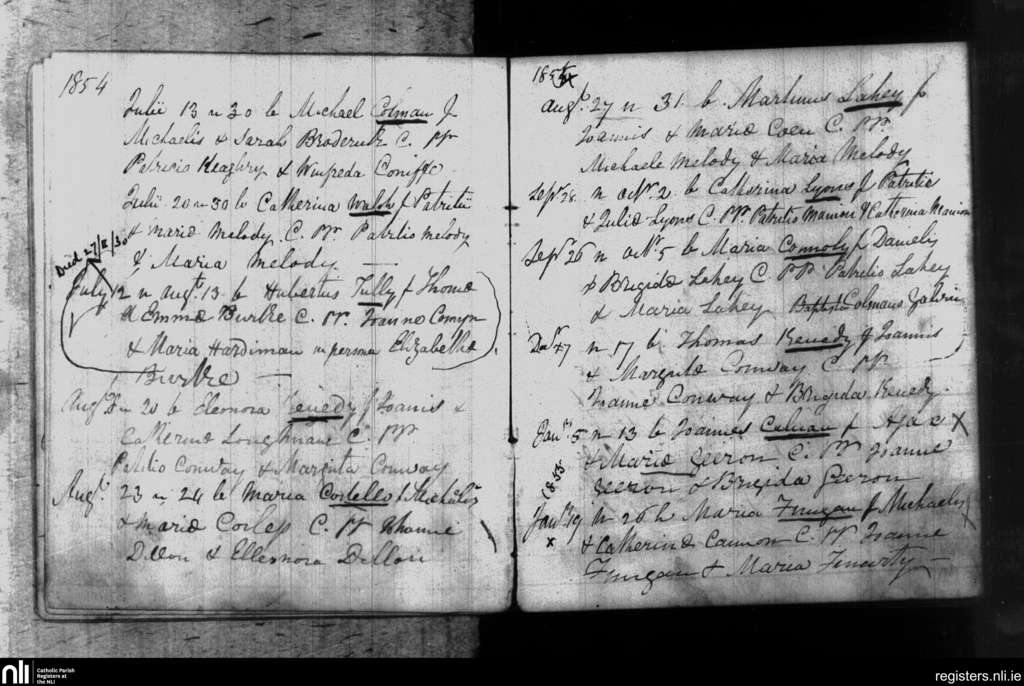 1854
Julii 13 n 30 b Michael Colman f
Michaelis & Sarah Broderick C. pp
Patricio Heaghry & Winfreda Coniffe
Julii 20 n 30 b Catherina Walsh f Patritii
& Mariæ Melody C. pp. Patritio Melody
& Maria Melody
Died 27/8/30
July 12 n augt. 13 b Hubertus Tully f Thomæ
& Emmæ Burke C. pp. Joanne Comyn
& Maria Hardiman in persona Elizabethæ
Burke
Augt n 20 b Eleonora Kenedy f Joanis &
Catherinæ Loughnane C. pp
Patitio Conway & Margrita Conway
Augt. 23 n 24 b Maria Costello f Michalis
& Mariæ Corless C. pp Thoanne
Dillon & Elleonora Dillon
1854
augt. 27 n 31 b Martinus Lahey f
Joannis & Mariæ Coen C. pp.
Michaele Melody & Maria Melody
Sepr 28 n octr. 2 b Catherina Lyons f Patritie
& Julia Lyons C. pp. Patritio Manion & Catherina Manion
Sepr 26 n octr. 5 b Maria Connoly f Danielis
& Brigidæ Lahey C pp Patritio Lahey
& Maria Lahey Baptista Colmans Galwin
Decr. 7 n 17 b Thomas Kenedy f Joannis
& Margritæ Conway C pp
Joanne Conway & Brigida Kenedy
Janr. 5 n 13 b Joannes Calnan f X
& Mariæ Geeron C. pp Joanne
Geeron & Brigida Geeron
1855
Janr. 19 n 26 b Maria Finigan f Michaelis
x & Catherinæ Cannon C. pp Joanne
Finigan & Maria Finarty
nli
Catholic Parish
Registers at
the NLI
registers.nli.ie